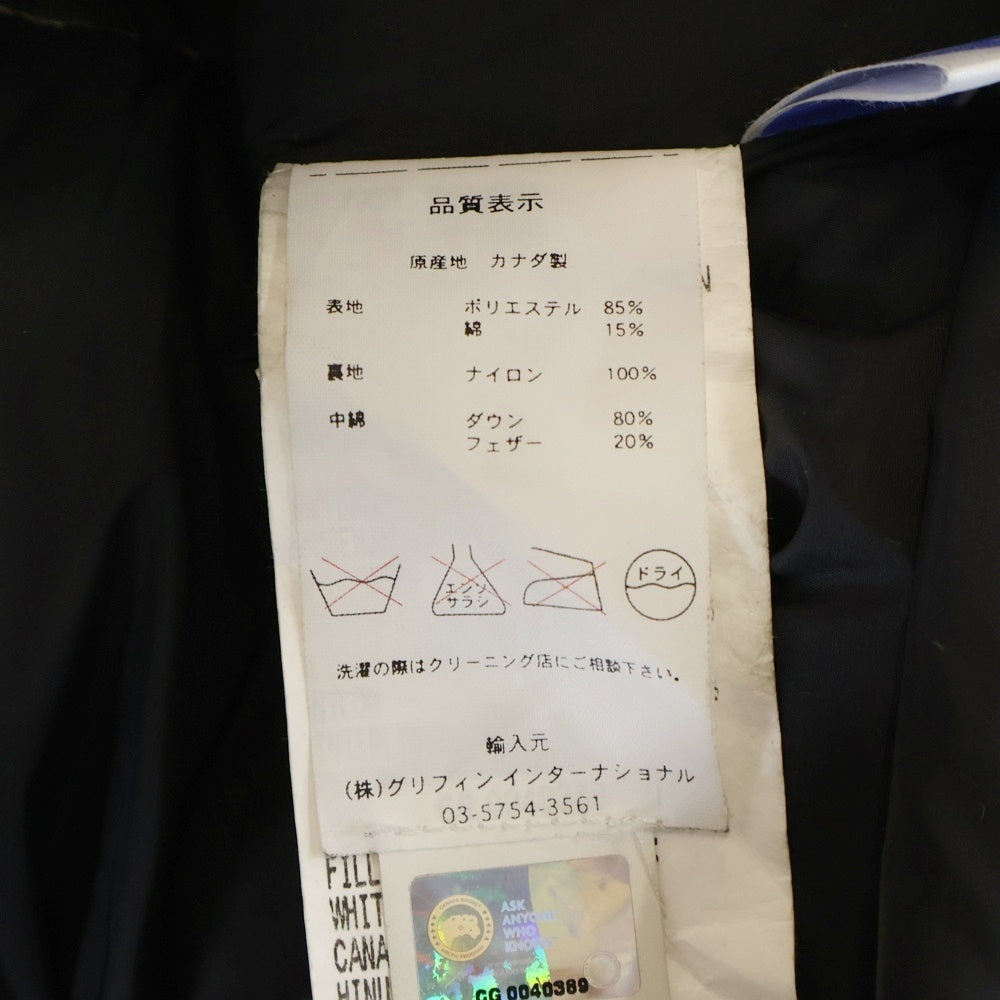 品質表示
原産地 カナダ製
表地 ポリエステル 85%
綿 15%
裏地 ナイロン 100%
中綿 ダウン 80%
フェザー 20%
エンソ
サラシ
ドライ
洗濯の際はクリーニング店にご相談下さい。
輸入元
(株)グリフィン インターナショナル
03-5754-3561
FILL
WHIT
CANA
ASK
ANYONE
WHO
KNOWS
CG 0040389